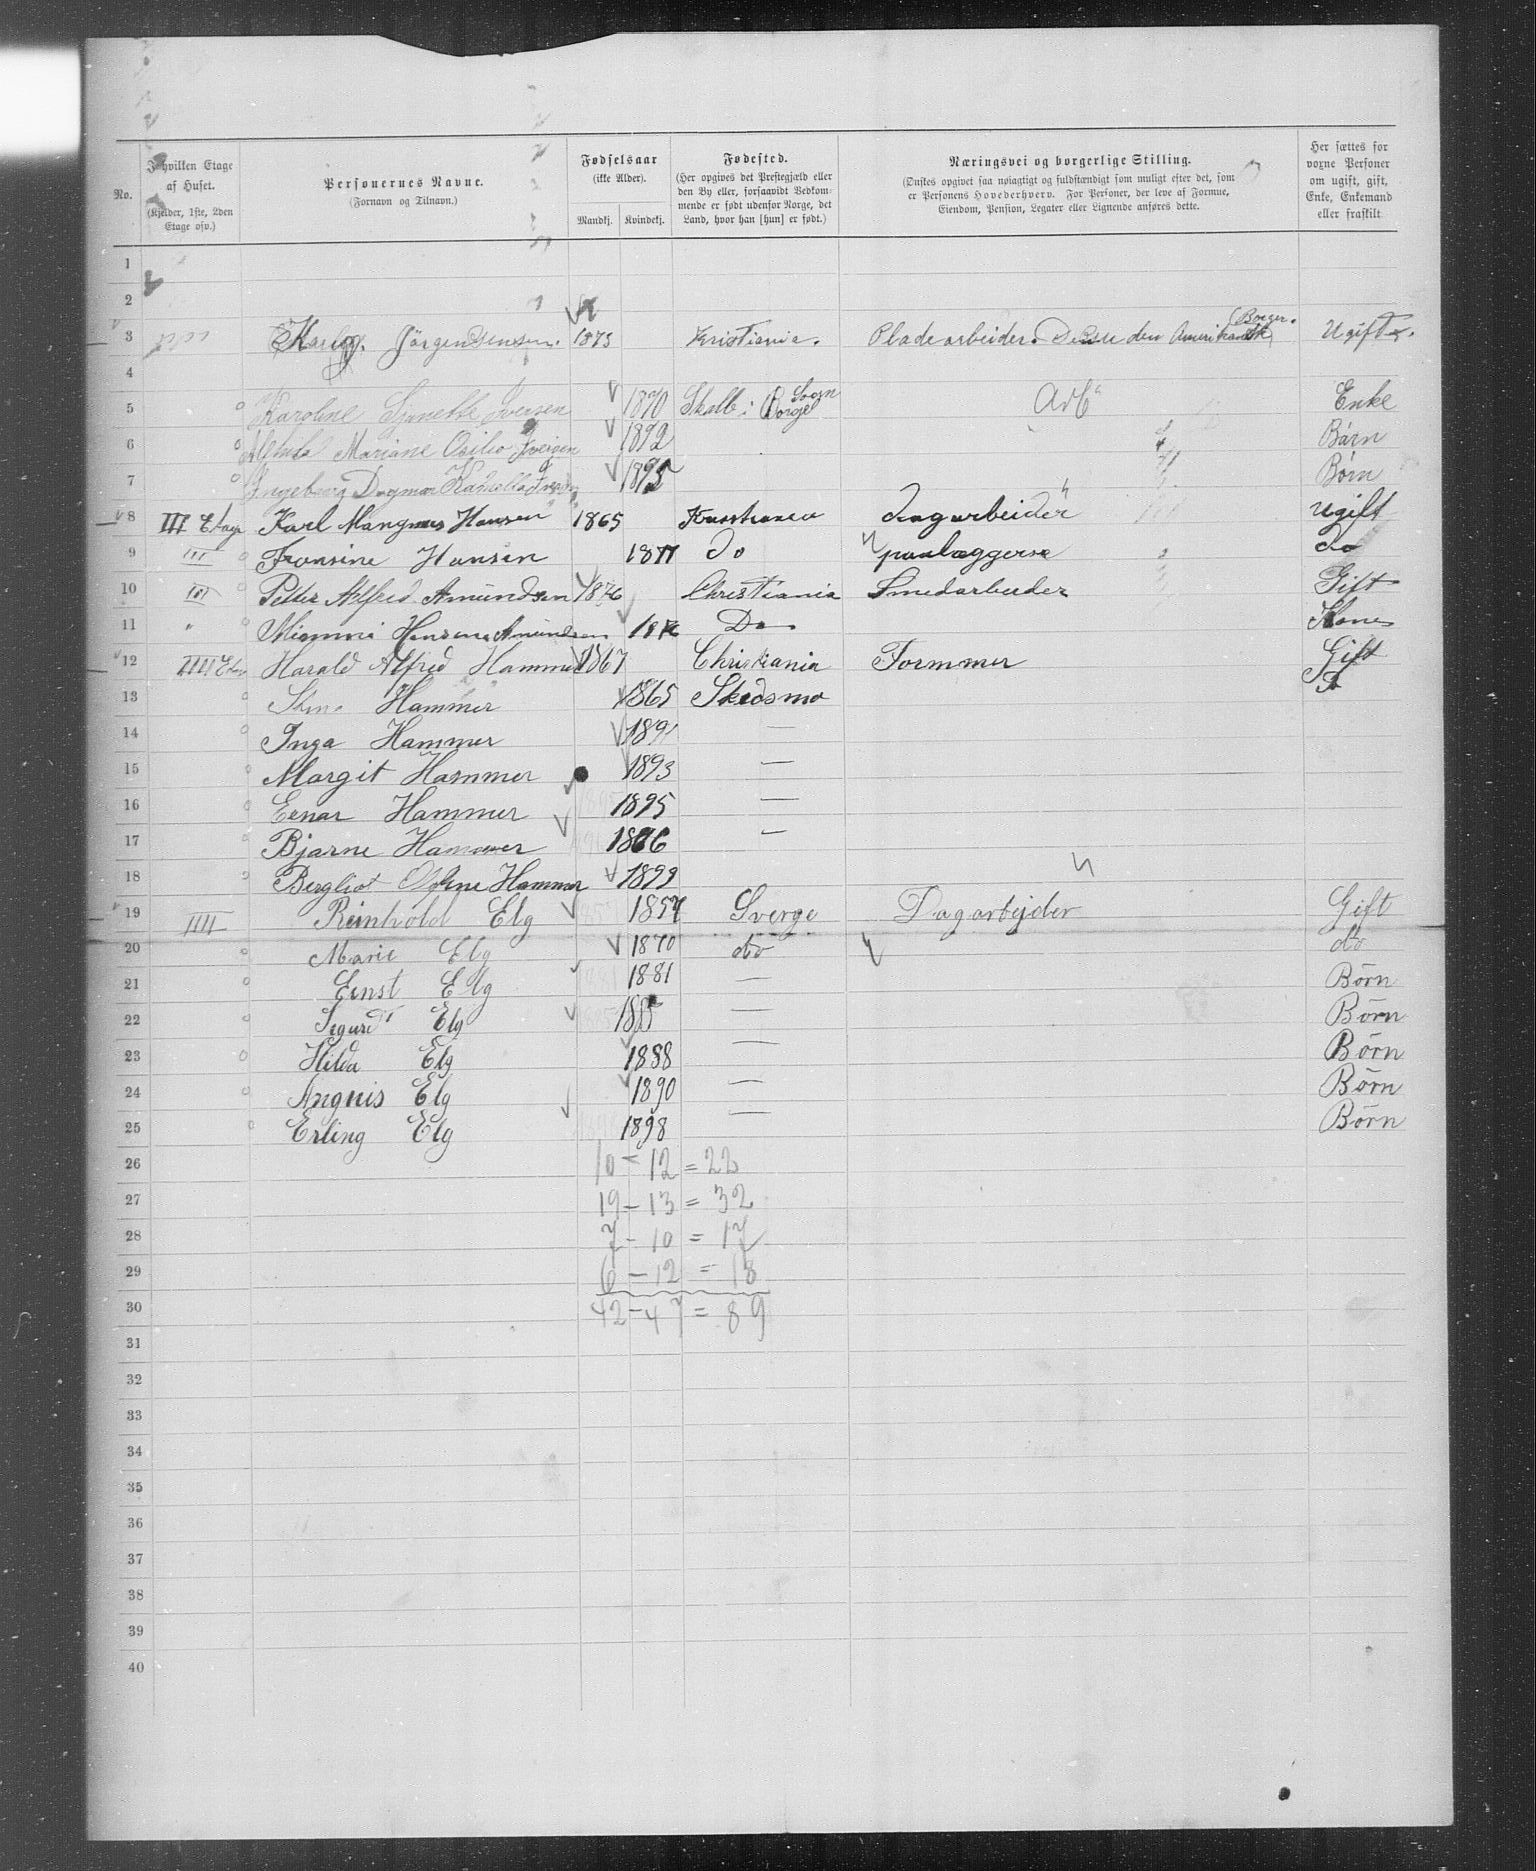 No. I hvilken Etage af Huset. (Kjelder, 1ste, 2den Etage osv.) Personernes Navne. (Fornavn og Tilnavn.) Fødselsaar (ikke Alder). Mandkj. Kvindekj. Fødested. (Her opgives det Prestegjæld eller den By eller, forsaavidt Vedkommende er født udenfor Norge, det Land, hvor han [hun] er født.) Næringsvei og borgerlige Stilling. (Ønskes opgivet saa nøiagtigt og fuldstændigt som muligt efter det, som er Personens Hovederhverv. For Personer, der leve af Formue, Eiendom, Pension, Legater eller Lignende anføres dette. Her sættes for voxne Personer om ugift, gift, Enke, Enkemand eller fraskilt
1
2
3 Jörgen Jensen. 1875 Kristiania. Pladearbeider. Desuden Amerikansk Borger. Ugift.
4
5 Karoline Iversen 1870 Sogn Arb Enke
6 Mariane Iversen 1892 Børn
7 Ingeborg Dagmar 1895 Børn
8 III Etage Karl Mangnus Hansen 1865 Kristiania dagarbeider ugift
9 III Fransine Hansen 1877 do paalæggerse do
10 III Petter Alfred Amundsen 1876 Christiania Smedarbeider Gift
11 " Amundsen Do Kone
12 IIII Etag Harald Alfred Hammer 1867 Christiania Formmer Gift
13 Hammer 1865 Skedsmo
14 Inga Hammer 1891 —
15 Margit Hammer 1893 —
16 Einar Hammer 1895 —
17 Bjarne Hammer —
18 Bergliot Hammer 1899
19 IIII Reinhold Elg 1857 Sverge Dagarbejder Gift
20 Marie Elg 1870 do do
21 Ernst Elg 1881 — Børn
22 Sigurd Elg 1885 — Børn
23 Hilda Elg 1888 — Børn
24 Angnis Elg 1890 — Børn
25 Erling Elg 1898 — Børn
26 10 - 12 = 22
27 19 - 13 = 32
28 7 - 10 = 17
29 6 - 12 = 18
30 42 - 47 = 89
31
32
33
34
35
36
37
38
39
40